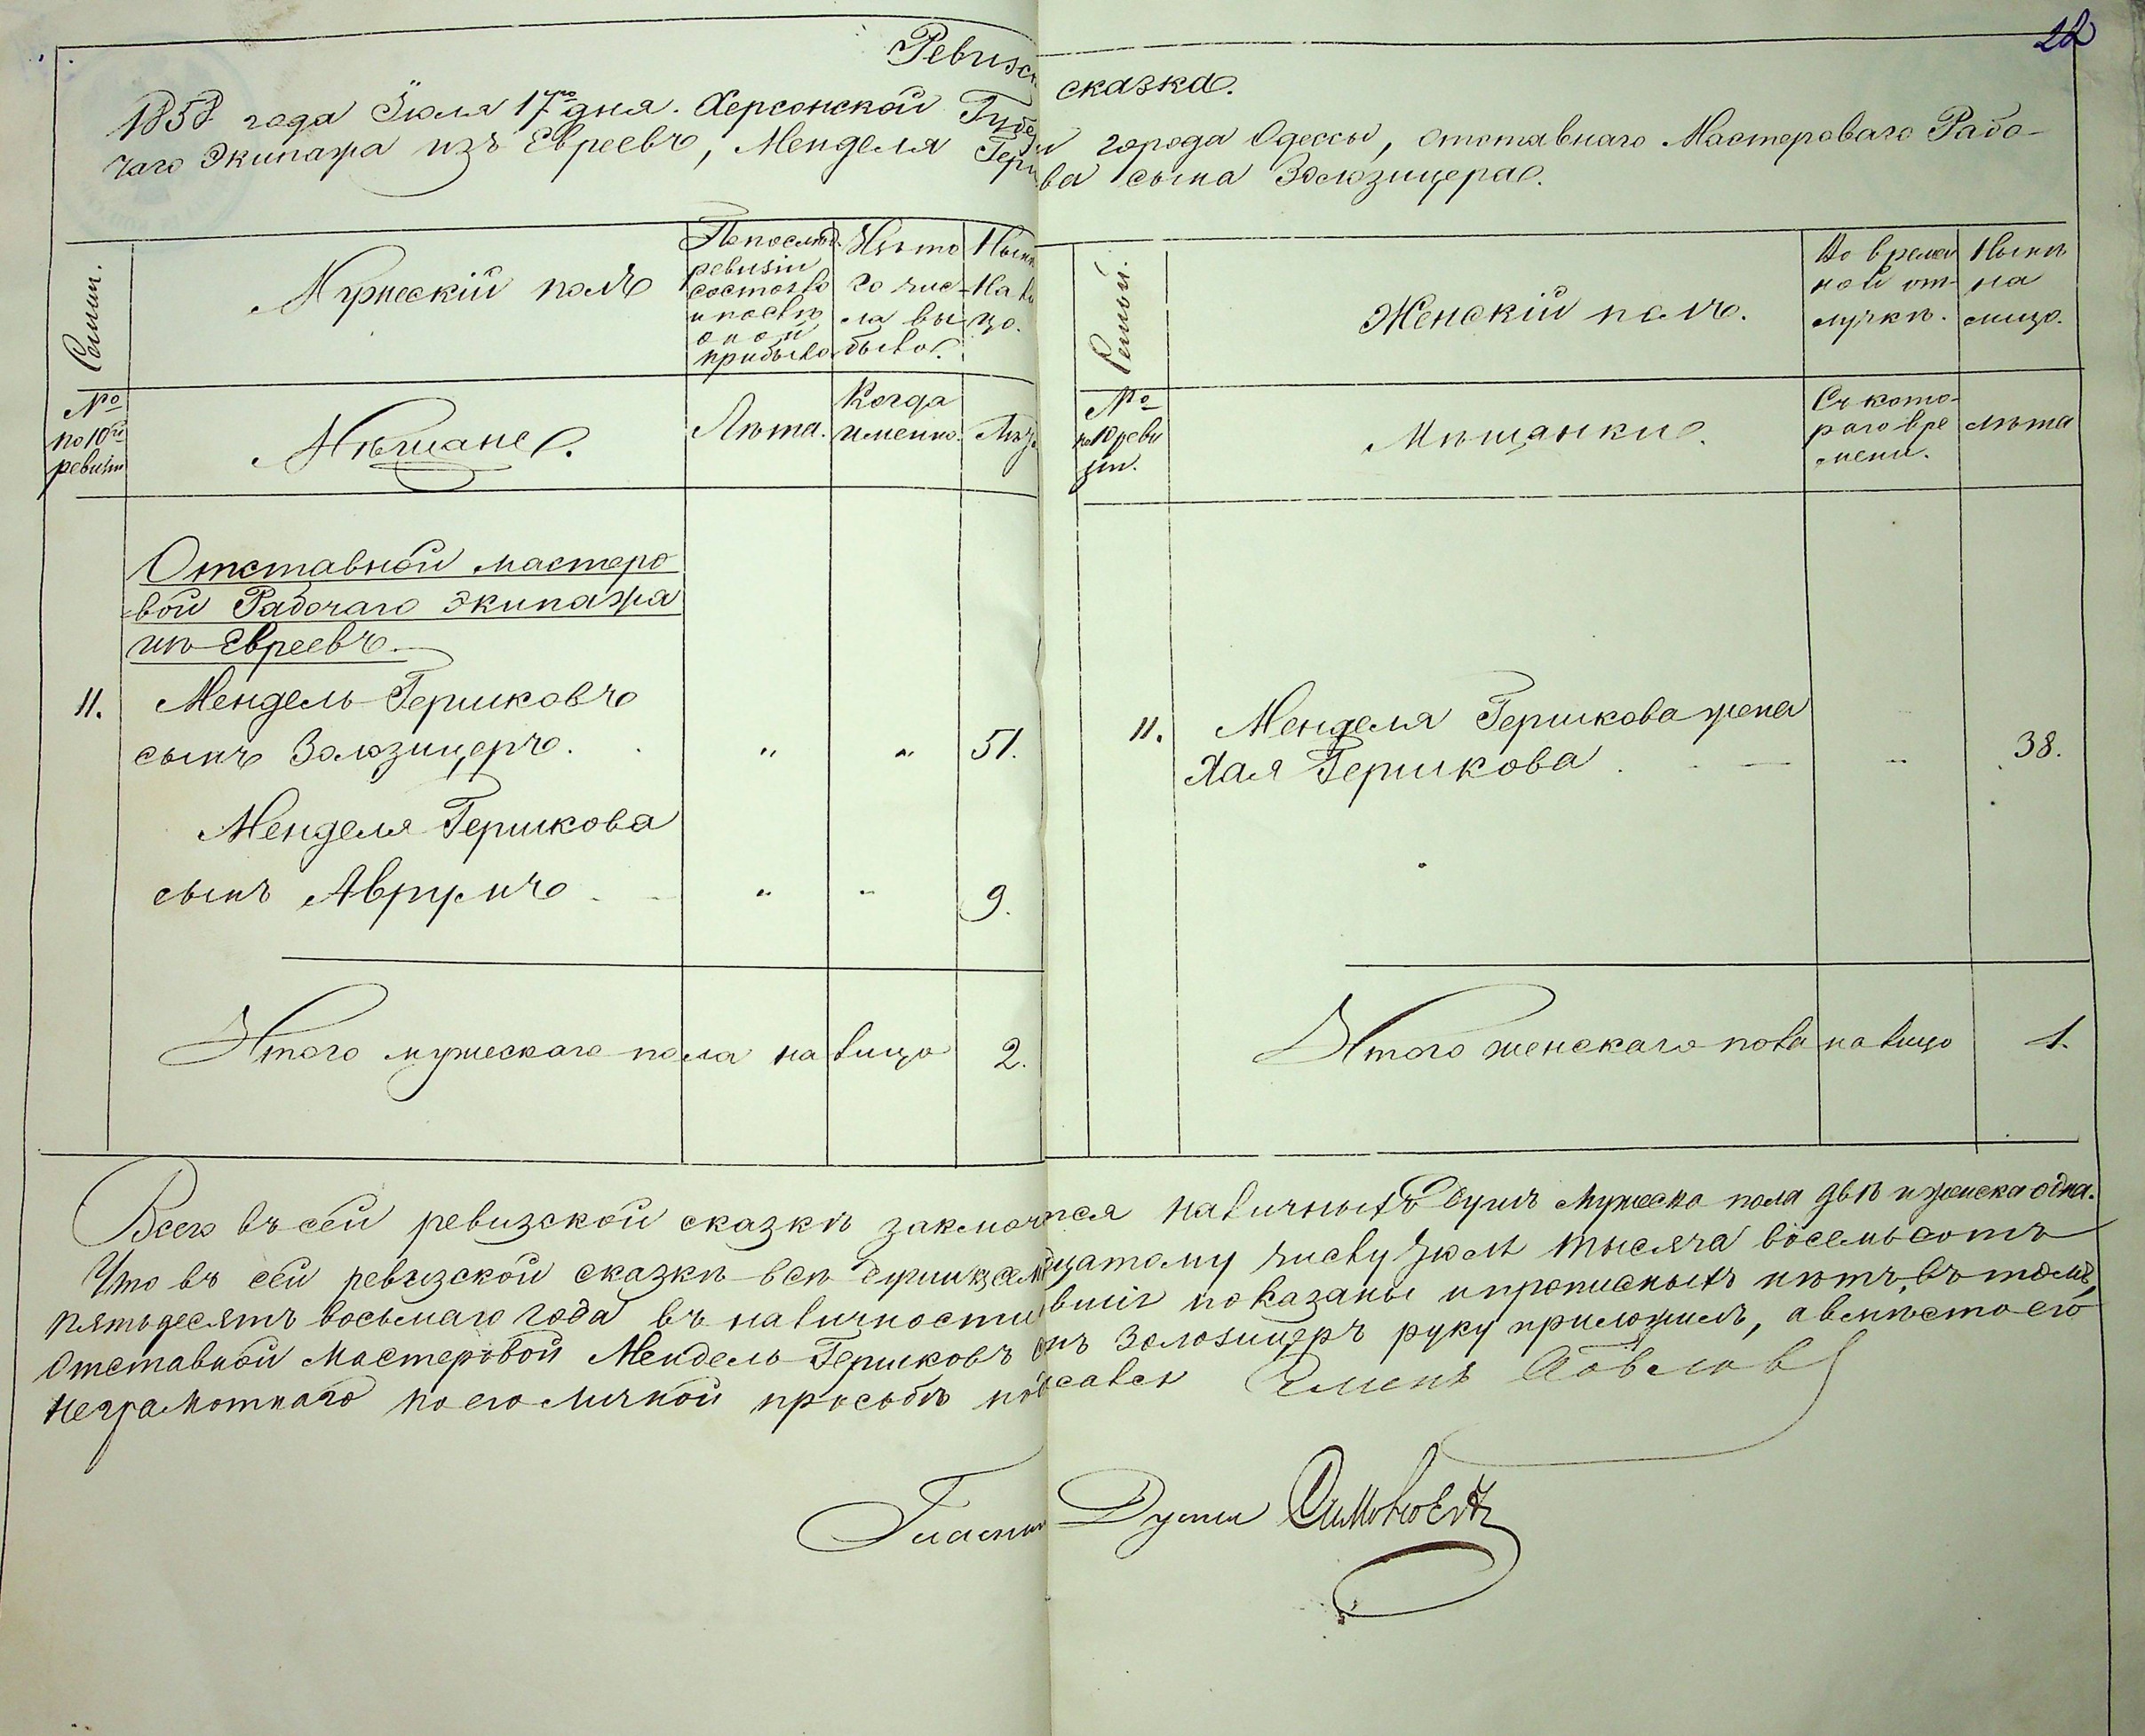 22
Ревизс сказка.
1858 года Іюля 17го дня. Херсонской Губе города Одессы, отставнаго Мастероваго Рабо-
чаго Экипажа изъ Евреевъ, Менделя Герш ва сына Золозицера.
Семьи.
Мужескій полъ
По послѣд. ревизіи состояло и послѣ оной прибыло.
Изъ то го чис- ла вы- было.
Нынѣ На ли цо.
Семьи.
Женскій полъ.
Во времен ной от- лучкѣ.
Нынѣ на лицо.
№ по 10й ревизіи
Мѣщане.
Лѣта.
Когда именно.
Лѣта
№ по 10 реви зіи.
Мѣщанки.
Съ кото- раго вре мени.
лѣта
Отставной мастеро
вой Рабочаго Экипажа
изъ Евреевъ.
11. Мендель Гершковъ
сынъ Золозицеръ. " " 51.
11. Менделя Гершкова жена
Хая Гершкова " 38.
Менделя Гершкова
сынъ Аврумъ " " 9.
Итого мужескаго пола на лицо 2.
Итого женскаго пола на лицо 1.
Всего въ сей ревизской сказкѣ заключается наличныхъ душъ Мужеска пола двѣ и женска одна.
Что въ сей ревизской сказкѣ всѣ души къ семнадцатому числу Іюля тысяча восемьсотъ
пятьдесятъ восьмаго года въ наличности бывшіе показаны и прописныхъ нѣтъ, въ томъ,
Отставной Мастеровой Мендель Гершковъ сынъ Золозицеръ руку приложилъ, а вмѣсто его
неграмотнаго по его личной просьбѣ подписался
Гласный Думы